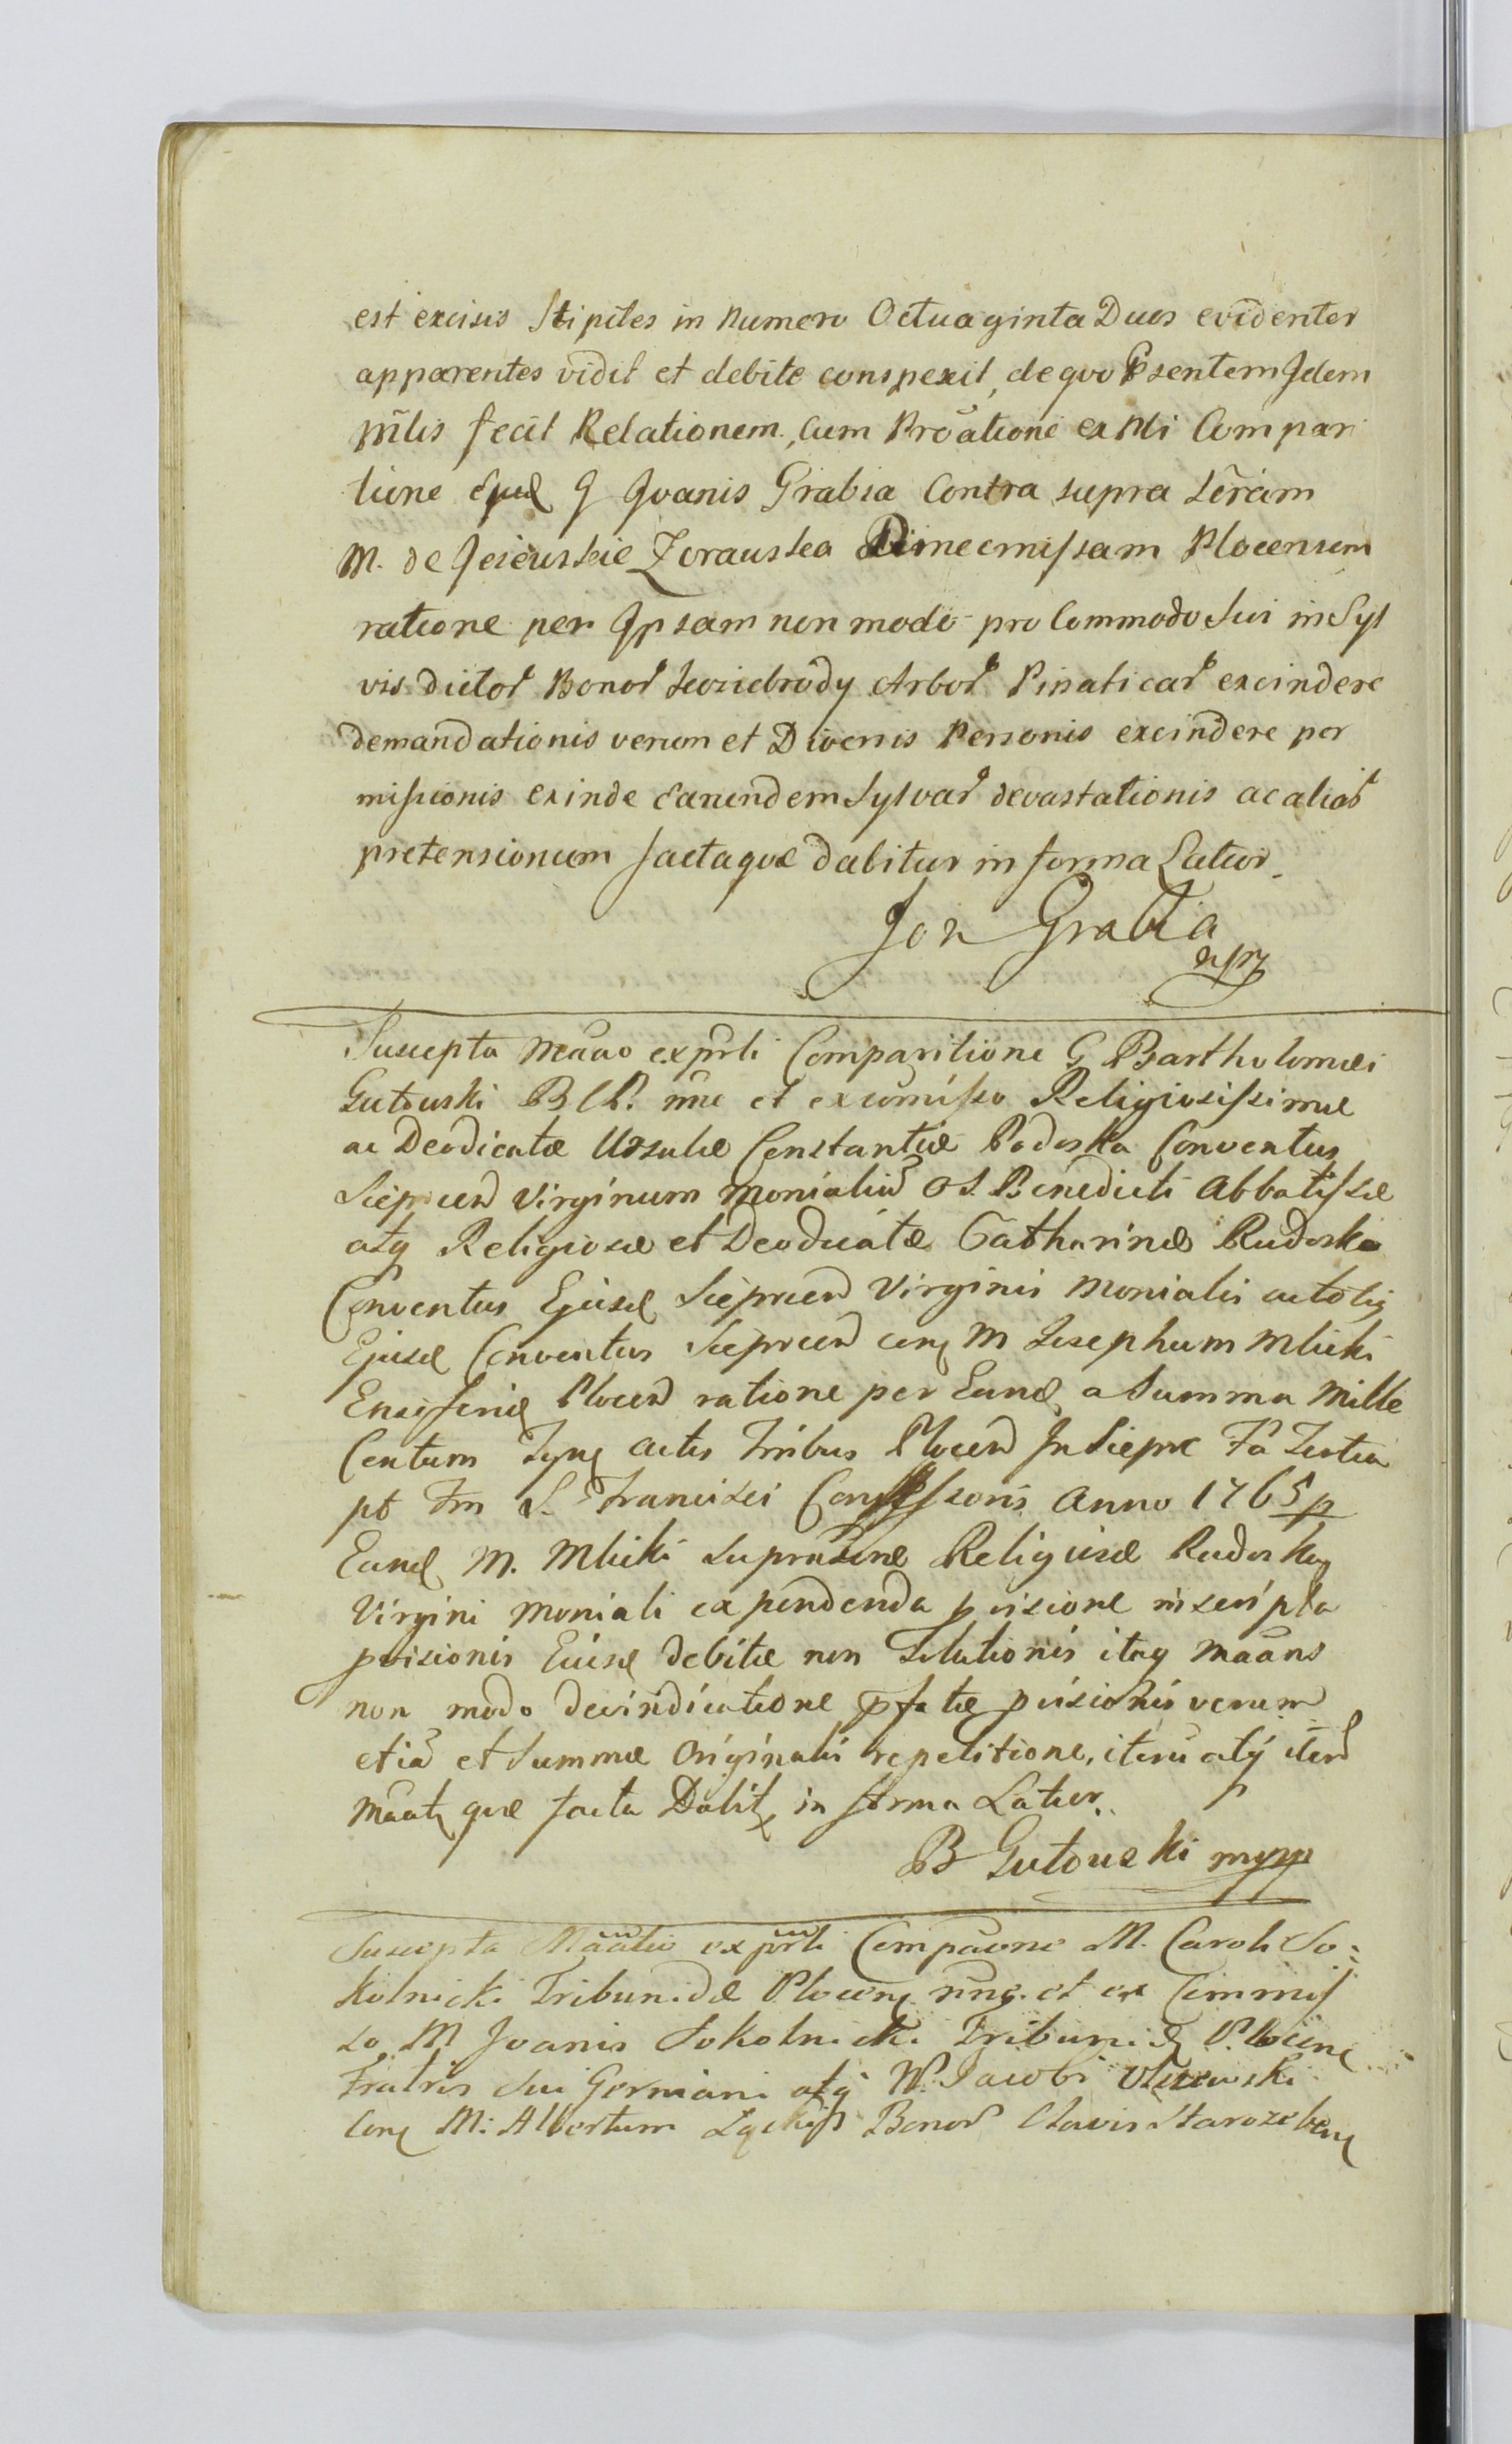 est excisis Stipites in numero Octuaginta Duos evidenter
apparentes vidit et debite conspexit, de quo Psentem Idem
pñlis fecit Relationem, Cum Proãtione ex pñli Compari
tione Ejusd G Joanis Grabia Contra supra scñram
M. de Zorauska Plocensem
ratione per Ipsam non modo pro Commodo Sui in Syl
vis dictor Bonor Koziebrody Arbor Pinaticar excindere
demandationis verum et Diversis Personis excindere per
missionis exinde Earundem Sylvar devastationis ac aliar
pretensionum factaque dabitur in forma Latior.
Jan Grabia
mpp
Suscepta Mãno ex pñrli Comparitione G Bartholomæi
Gutowski B C P. nne et ex comisso Religiosissimæ
ac Deodicatæ Ursulæ Constantiæ Podoska Conventus
Sieprcen Virginum Monialiũ O S. Benedicti Abbatissæ
atq Religiosæ et Deodicatæ Catharinæ Rudoska
Conventus Ejusd Sieprcen Virginis Monialis ac totiq
Ejusd Conventus Sieprcen con M Josephum Mlicki
Ensiferid Plocen ratione per Eund a Summa Mille
Centum Tynf actis Tribus Plocen In Sieprc Fa Tertia
pt Fm S. Francisci Confessoris Anno 1765 p
Eund M. Mlicki supratæ Religiosæ Rudoska
Virgini Moniali ex pendenda pvisione inscripta
pvisionis Ejusd debitæ non Solutionis itaq Mãans
non modo devindicatione pfatæ pvisionis verum
etiã et Summæ Originalis repetitione, iterũ atq iterũ
Mãat quæ facta Dabit in forma Latior.
B Gutowski mpp
Suscepta Mãatio ex pñrli Compãone M. Caroli So=
kolnicki Tribunidæ Plocen nne. et ex Commis
so M Joanis Sokolnicki Tribunid Plocen
Fratris Sui Germani atq W. Jacobi Olszewski
Con M: Albertum Bonor Clavis Starozreben